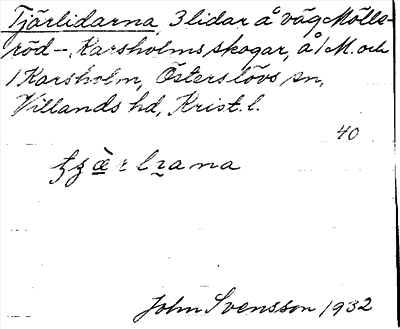 Tjärlidarna, 3 lidar å väg Mölls-
röd - Karsholms skogar, å 1 M. och
1 Karsholm, Österslövs sn,
Villands hd, Krist. l.
40
John Svensson 1932